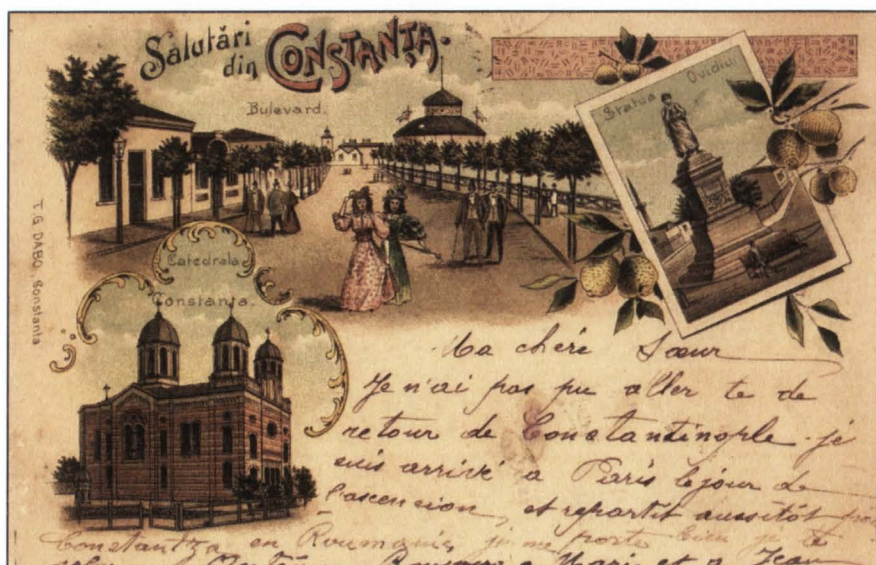 Salutări
din CONSTANȚA.
Bulevard.
Statua Ovidiu
T. G. DABO, Constanta
Catedrala
Constanța.
Ma chère Sœur
Je n'ai pas pu aller te de
retour de Constantinople je
suis arrivé a Paris le jour de
l'ascension, et repartit aussitôt
Constantza en Roumanie, je me porte bien je te
a Marie et a Jean